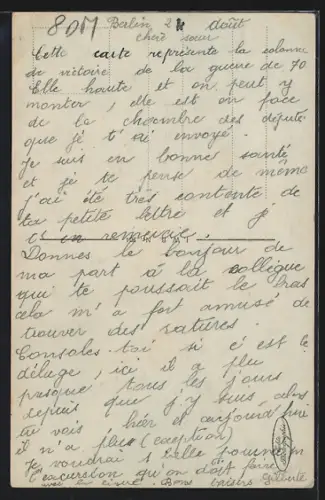 8 DM
Balin 24 Août
chère sœur
Cette carte représente la colonne
de victoire de la guerre de 70
Elle haute et on peut y
monter, elle est en face
de la chambre des députés
que je t'ai envoyé.
Je suis en bonne santé
et je te pense de même
j'ai été très contente de
ta petite lettre et je
t'en remercie.
Donnes le bonjour de
ma part à la collègue
qui te poussait le bras
cela m'a fort amusé de
trouver des ratures.
Consoles-toi si c'est le
déluge, ici il a plu
presque tous les jours
depuis que j'y suis, alors
tu vois, hier et aujourd'hui
il n'a plu (exception)
Je voudrai
l'excursion qu'on doit faire
Bons baisers Gilberte